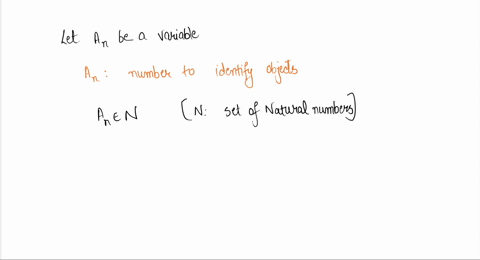 Let Aₙ be a variable
Aₙ: number to identify objects
Aₙ ∈ N (N: set of Natural numbers)